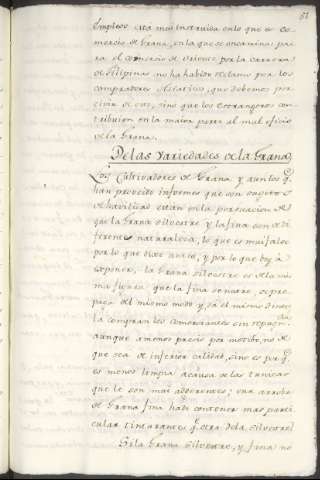 51
Empleo esta mui instruida en lo que es Co-
mercio de Grana, en la que se encamina pa-
ra el comercio de Oriente por la Carrera
de Filipinas no ha habido reclamo por los
compradores Asiaticos, que debemos per-
civir de eso, sino que los Extrangeros con-
tribuien en la maior parte al mal oficio
de la Grana.
De las Variedades de la Grana,
Los Cultivadores de Grana, y aun los q.
han producido informes que son sugetos
de havilidad estan en la persuacion de
que la Grana silvestre y la fina son de di-
ferente naturaleza, lo que es mui falso
por lo que llevo dicho, y por lo que boy à
exponer, la Grana silvestre es de la mis-
ma figura que la fina señares, se pro-
paga del mismo modo y, dà el mismo
la compran los Comerciantes sin repugn.
aunque a menos precio por motibo, no de
que sea de inferior calidad, sino es por q.
es menos limpia à causa de las tunicas
que le son mui adherentes; una arroba
de Grana fina ha de contener mas parti-
culas tinturantes q. otra de la silvestre
Si la Grana silvestre, y fina no